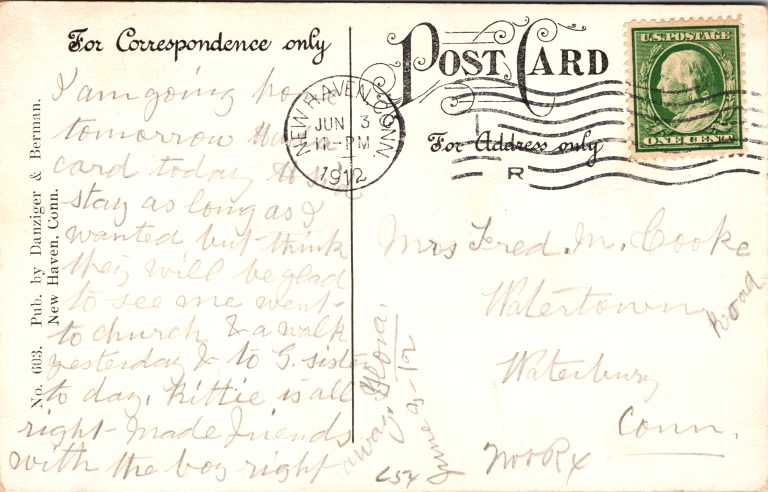 For Correspondence only
POST CARD
For Address only
U.S. POSTAGE
ONE CENT
NEW HAVEN, CONN.
JUN 3
12-PM
1912
R
I am going home
tomorrow
card today
stay as long as I
wanted but think
they will be glad
to see me went
to church & a walk
yesterday & to G. sister
to day. Kittie is all
right - made friends
with the boy right
away.
June 3-12
Mrs Fred. M. Cooke
Watertown Road
Waterbury
Conn.
No. 603. Pub. by Danziger & Berman.
New Haven, Conn.